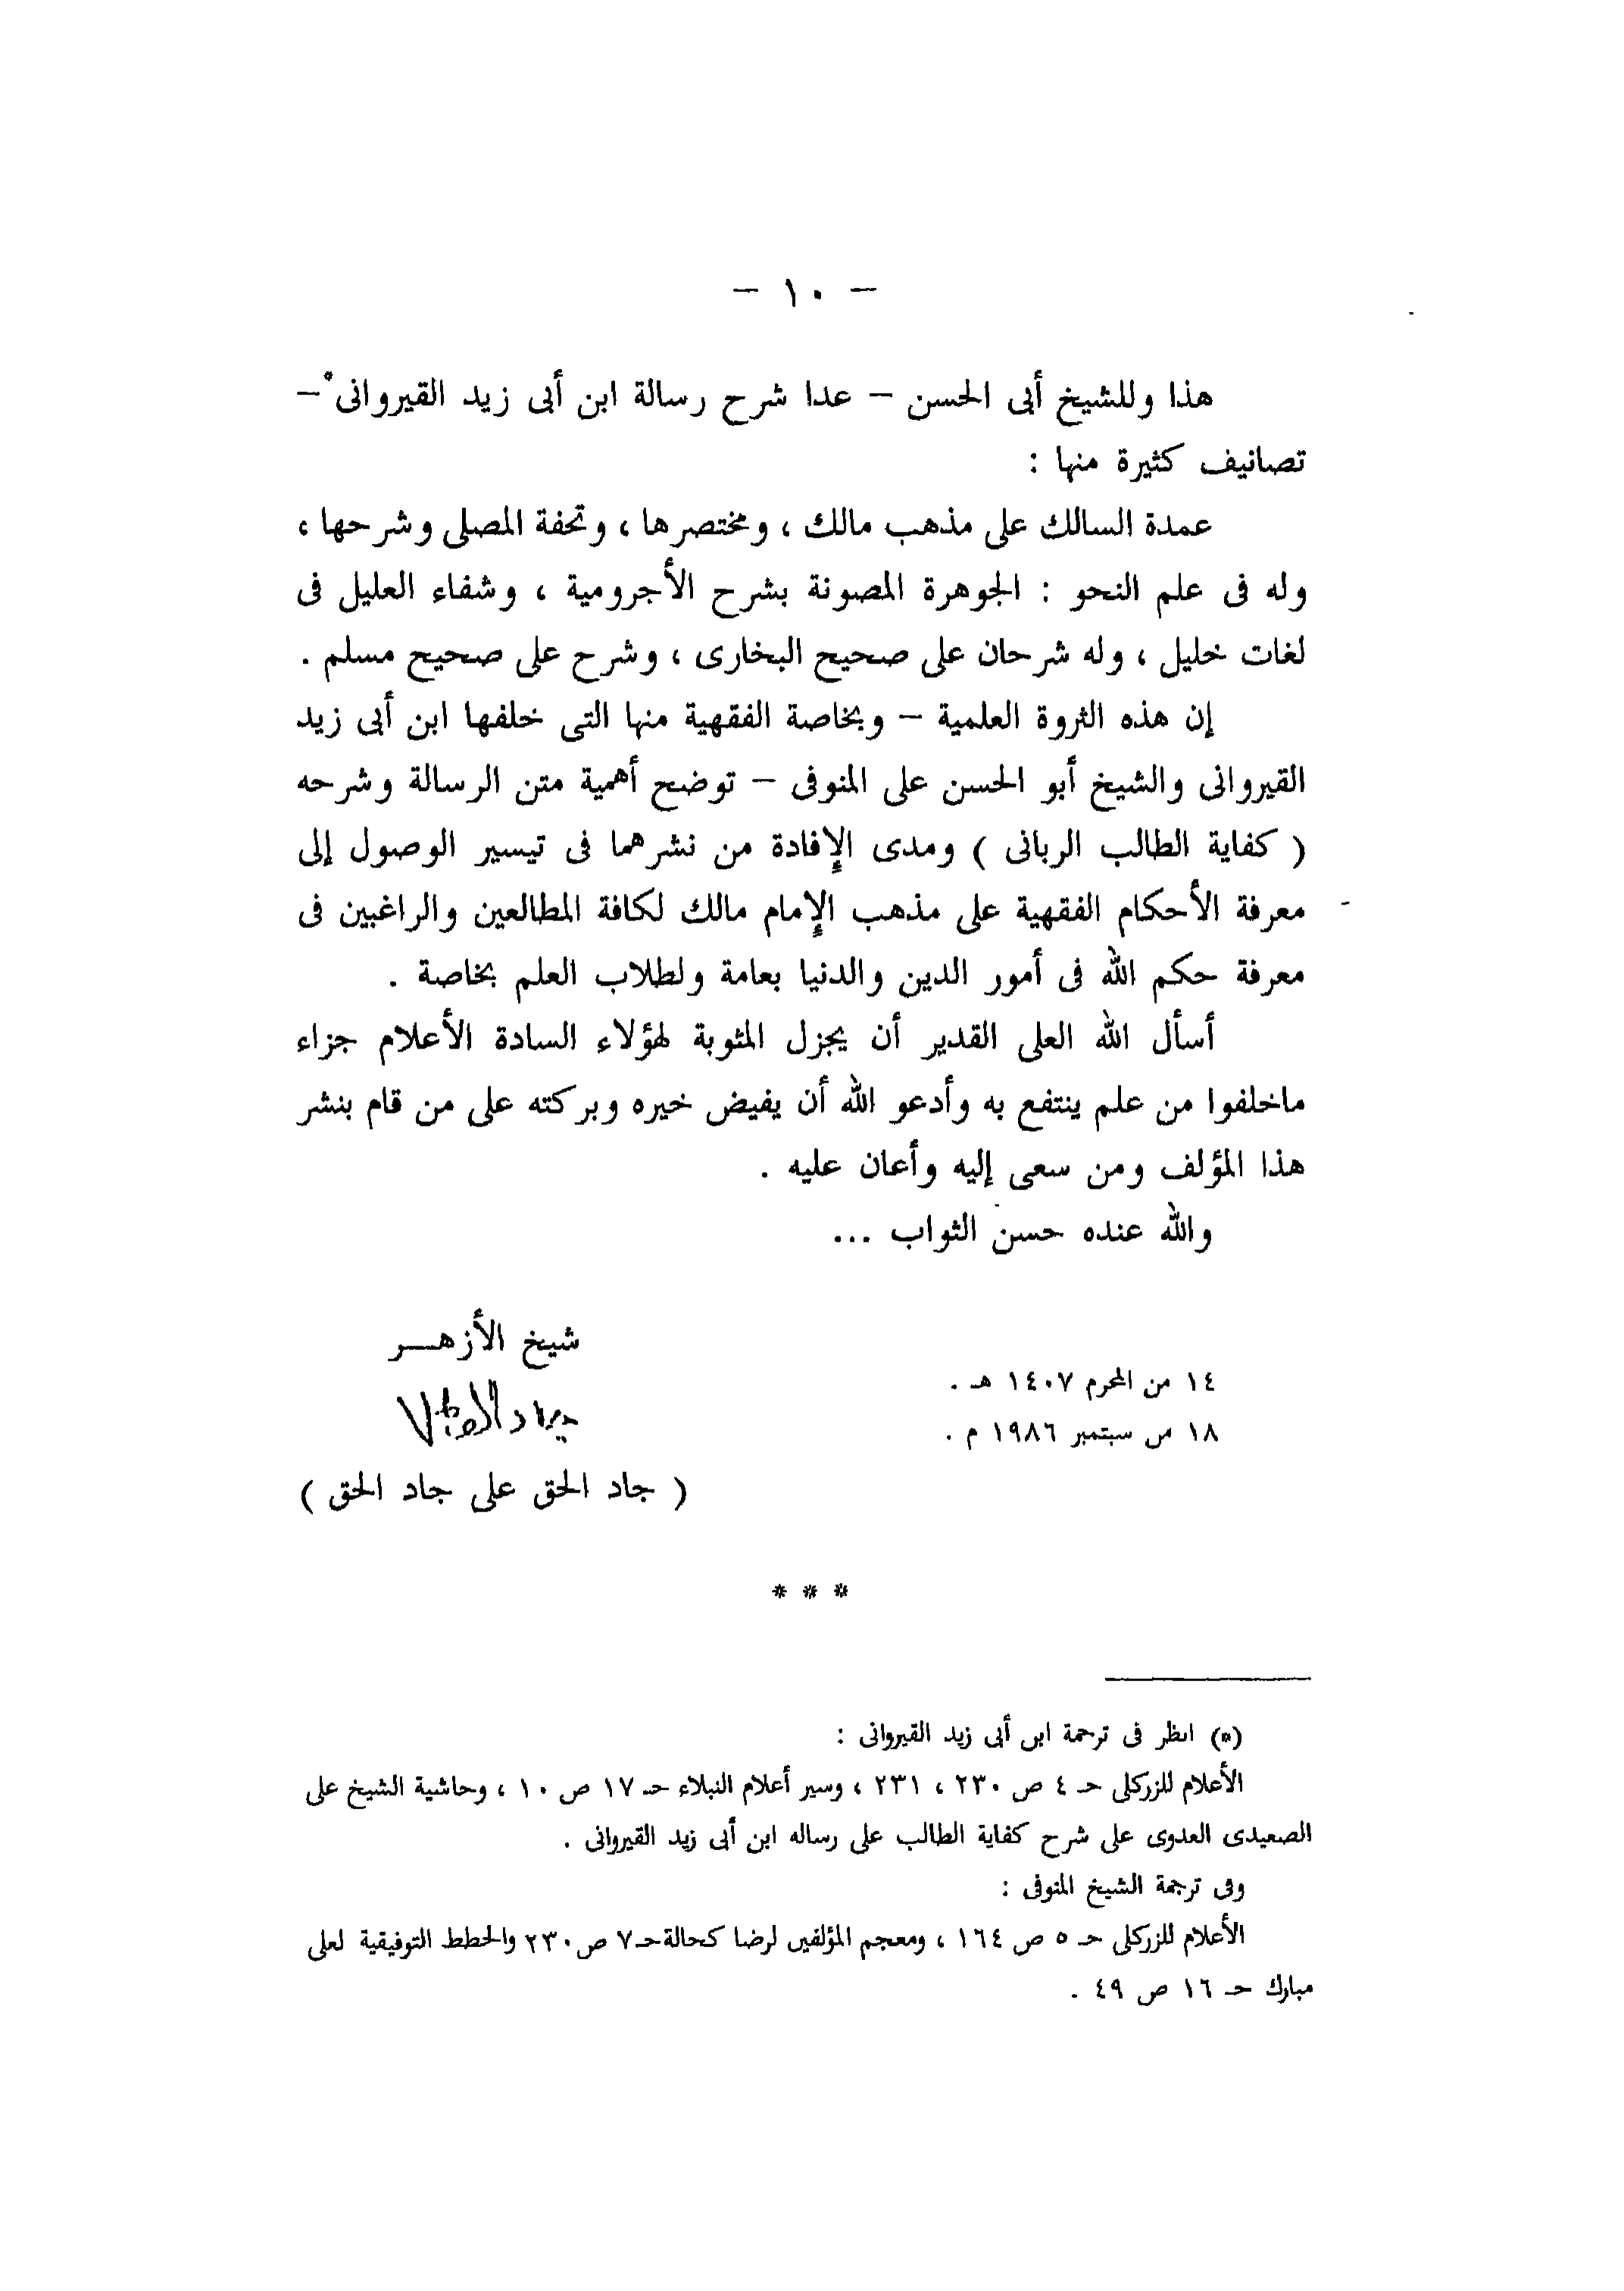 – ١٠ –
هذا وللشيخ أبى الحسن – عدا شرح رسالة ابن أبى زيد القيروانى* –
تصانيف كثيرة منها :
عمدة السالك على مذهب مالك ، ومختصرها ، وتحفة المصلى وشرحها ،
وله فى علم النحو : الجوهرة المصونة بشرح الأجرومية ، وشفاء العليل فى
لغات خليل ، وله شرحان على صحيح البخارى ، وشرح على صحيح مسلم .
إن هذه الثروة العلمية – وبخاصة الفقهية منها التى خلفها ابن أبى زيد
القيروانى والشيخ أبو الحسن على المنوفى – توضح أهمية متن الرسالة وشرحه
( كفاية الطالب الربانى ) ومدى الإفادة من نشرهما فى تيسير الوصول إلى
معرفة الأحكام الفقهية على مذهب الإمام مالك لكافة المطالعين والراغبين فى
معرفة حكم الله فى أمور الدين والدنيا بعامة ولطلاب العلم بخاصة .
أسأل الله العلى القدير أن يجزل المثوبة لهؤلاء السادة الأعلام جزاء
ماخلفوا من علم ينتفع به وأدعو الله أن يفيض خيره وبركته على من قام بنشر
هذا المؤلف ومن سعى إليه وأعان عليه .
والله عنده حسن الثواب ...
شيخ الأزهـــر
١٤ من المحرم ١٤٠٧ هـ .
١٨ من سبتمبر ١٩٨٦ م .
( جاد الحق على جاد الحق )
* * *
(*) انظر فى ترجمة ابن أبى زيد القيروانى :
الأعلام للزركلى حـ ٤ ص ٢٣٠ ، ٢٣١ ، وسير أعلام النبلاء حـ ١٧ ص ١٠ ، وحاشية الشيخ على
الصعيدى العدوى على شرح كفاية الطالب على رساله ابن أبى زيد القيروانى .
وفى ترجمة الشيخ المنوفى :
الأعلام للزركلى حـ ٥ ص ١٦٤ ، ومعجم المؤلفين لرضا كحالة حـ ٧ ص ٢٣٠ والخطط التوفيقية لعلى
مبارك حـ ١٦ ص ٤٩ .